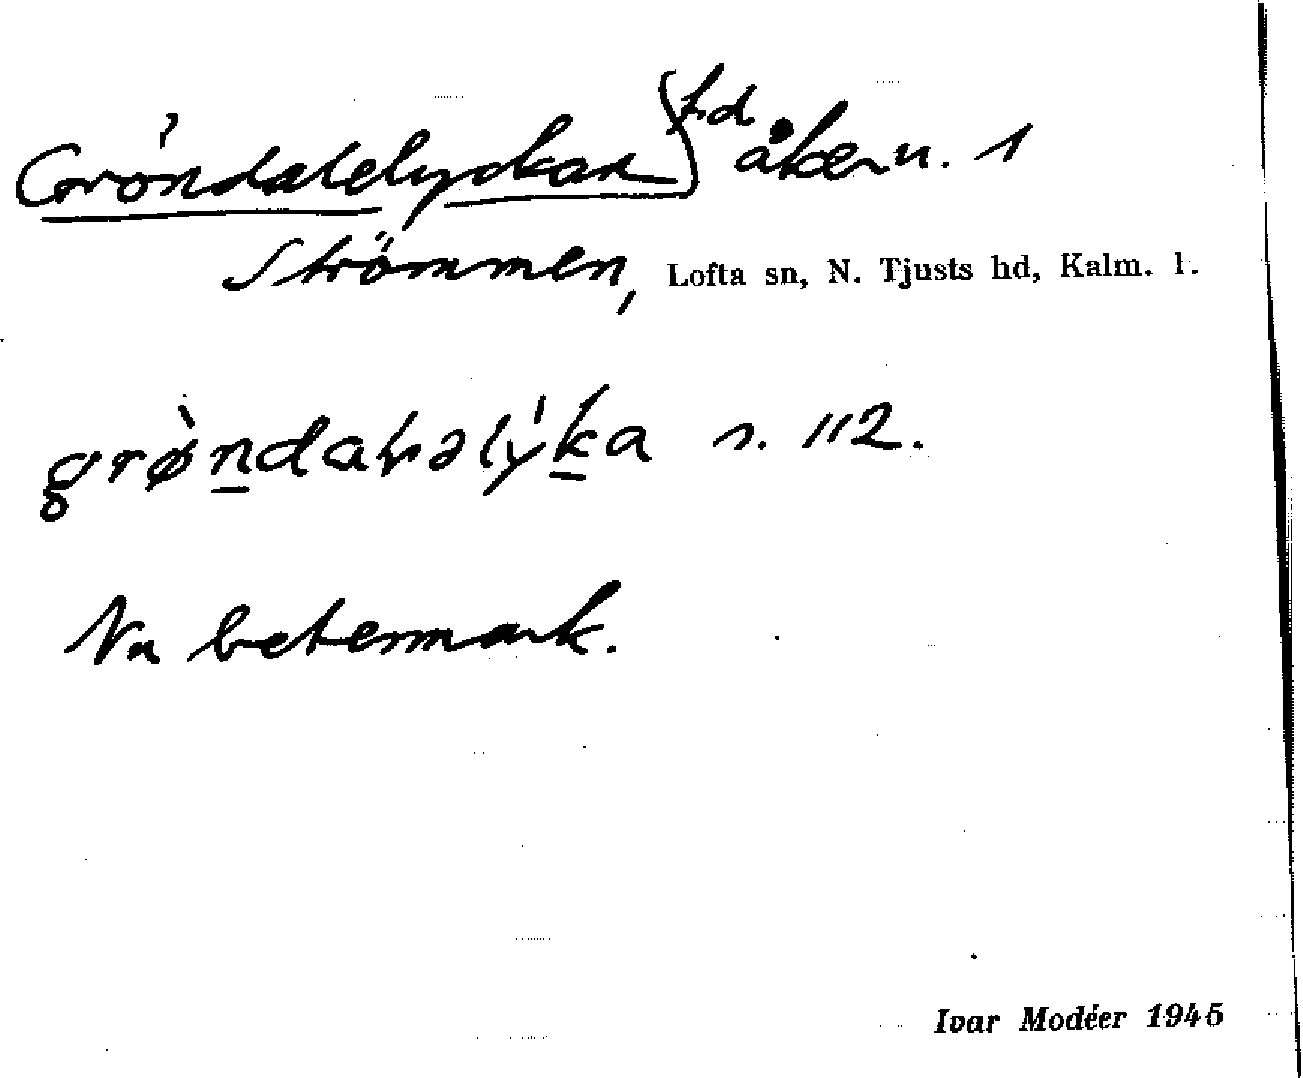 Gröndalelyckan f.d. åker n. 1
Strömmen, Lofta sn, N. Tjusts hd, Kalm. l.
s. 112.
Nu betesmark.
Ivar Modéer 1945